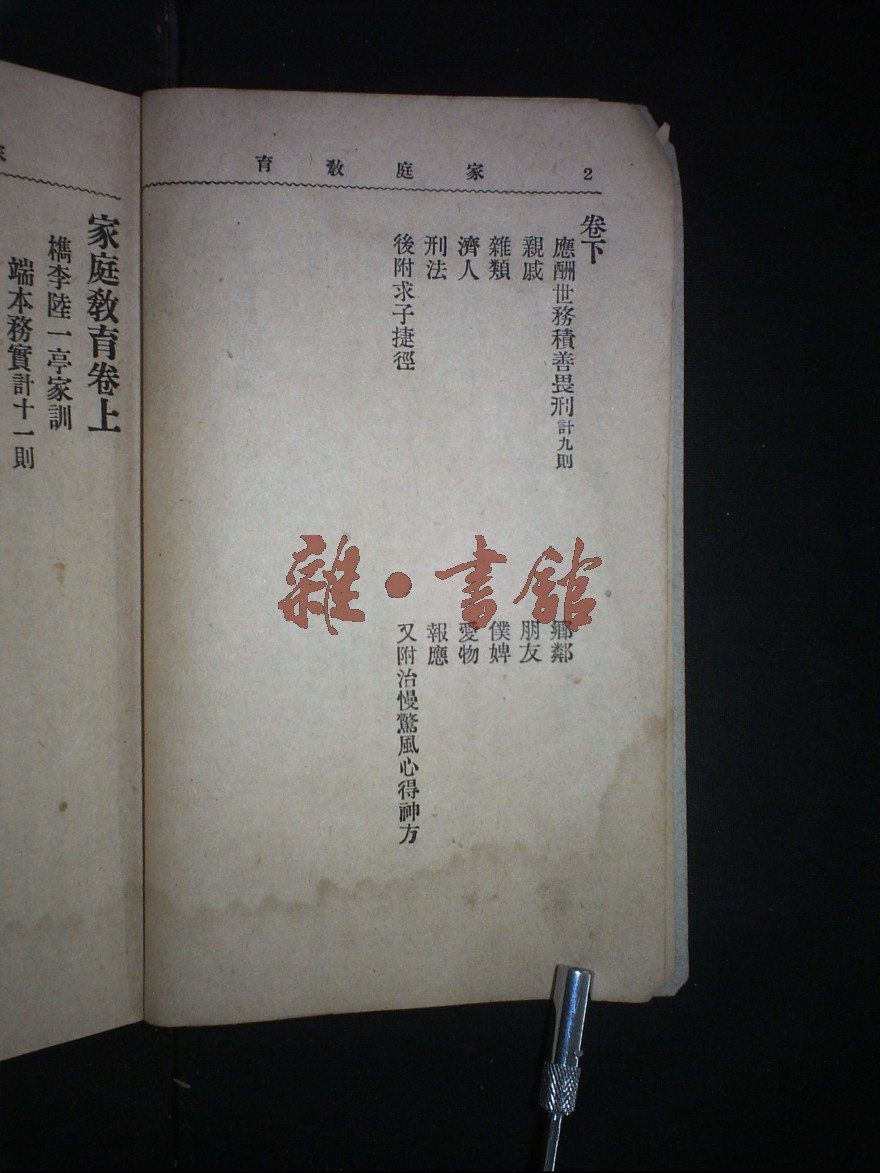 2 家庭教育
卷下
應酬世務積善畏刑計九則
鄉鄰
親戚
朋友
雜類
僕婢
濟人
愛物
刑法
報應
後附求子捷徑
又附治慢驚風心得神方
家庭教育卷上
檇李陸一亭家訓
端本務實計十一則
雜·書館